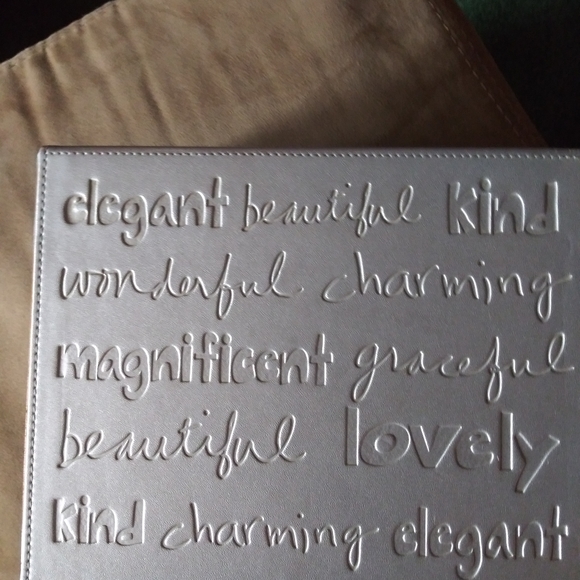 elegant beautiful kind
wonderful charming
magnificent graceful
beautiful lovely
kind charming elegant